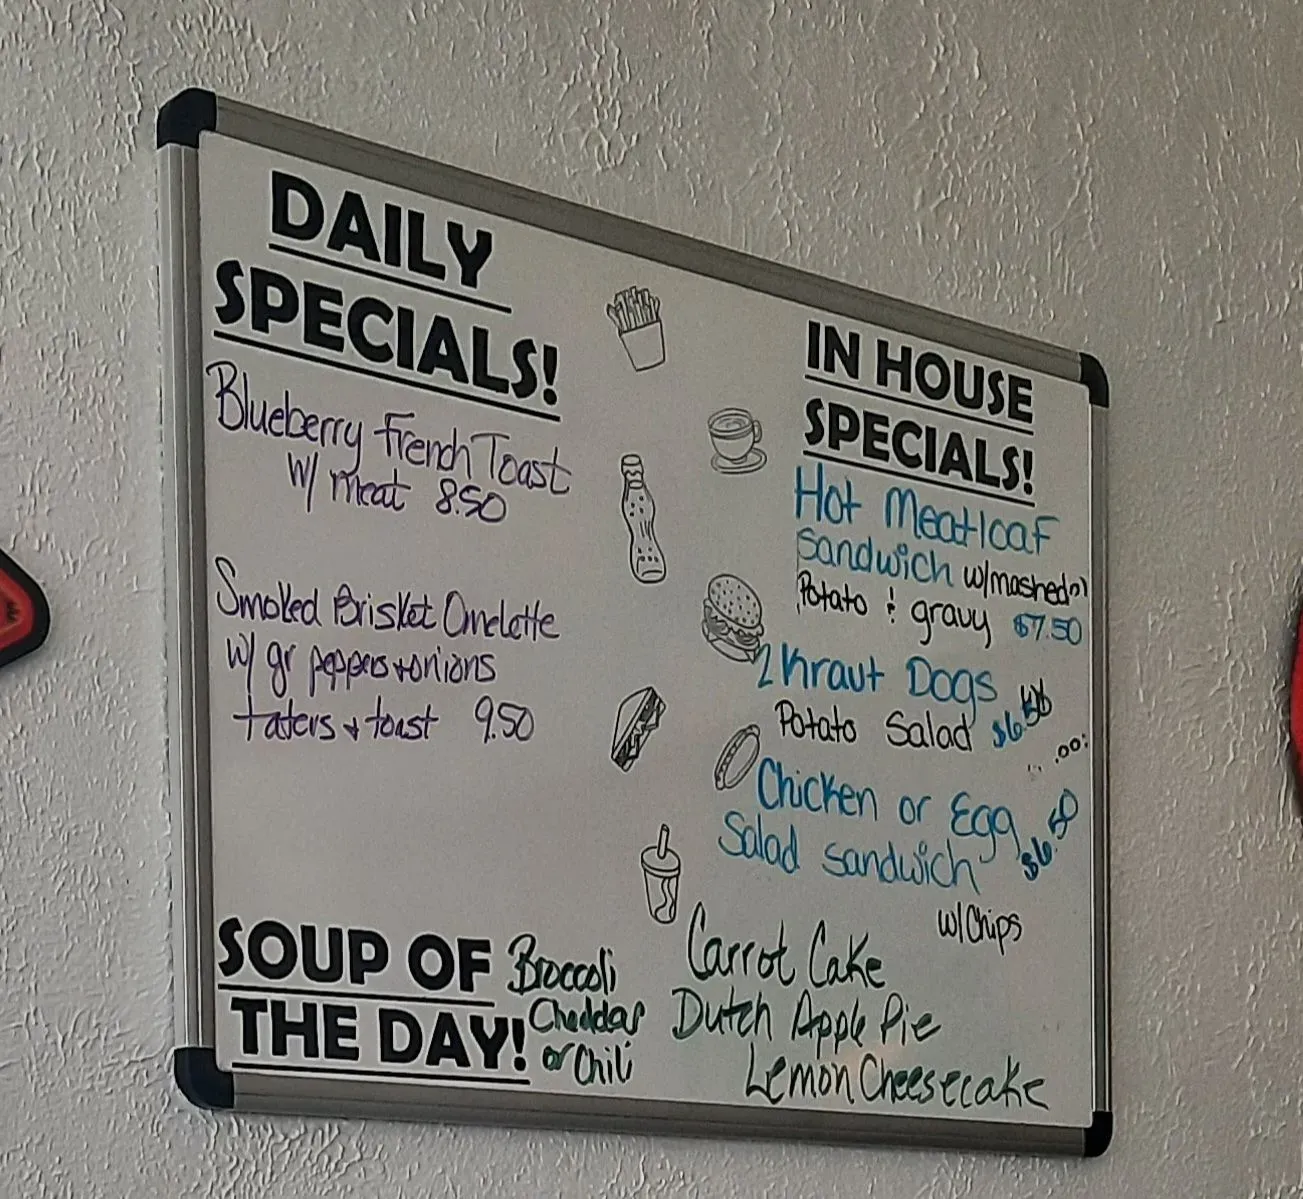 DAILY
SPECIALS!
Blueberry French Toast
w/ meat 8.50
Smoked Brisket Omelette
w/ gr peppers + onions
taters + toast 9.50
IN HOUSE
SPECIALS!
Hot Meatloaf
Sandwich w/mashed
Potato & gravy $7.50
2 Kraut Dogs
Potato Salad $6.50
Chicken or Egg
Salad Sandwich $6.50
w/Chips
SOUP OF
THE DAY!
Broccoli
Cheddar
or Chili
Carrot Cake
Dutch Apple Pie
Lemon Cheesecake